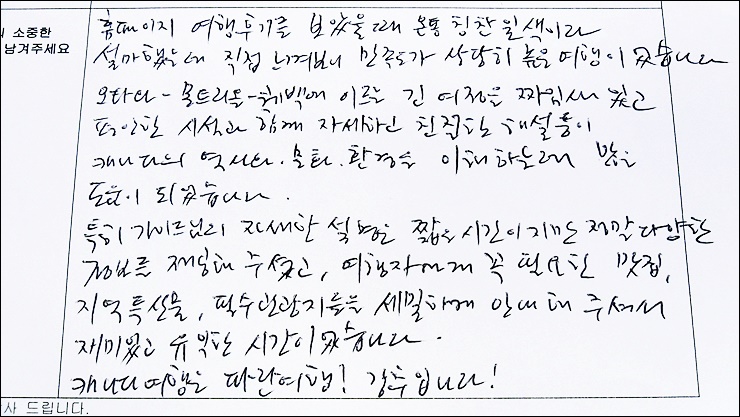 소중한
남겨주세요
홈페이지 여행후기를 보았을때 온통 칭찬 일색이라
설마했는데 직접 느껴보니 만족도가 상당히 높은 여행이었습니다
오타와 - 몬트리올 - 퀘벡에 이르는 긴 여정을 짜임새 있고
편안한 시석과 함께 자세하고 친절한 해설들이
캐나다의 역사와.문화.환경을 이해하는데 많은
도움이 되었습니다.
특히 가이드님의 자세한 설명은 짧은 시간이지만 정말 다양한
정보를 제공해 주셨고, 여행자에게 꼭 필요한 맛집,
지역 특산물, 필수관광지들을 세밀하게 안내해 주셔서
재미있고 유익한 시간이었습니다.
캐나다여행은 파란여행! 강추입니다!
사 드립니다.